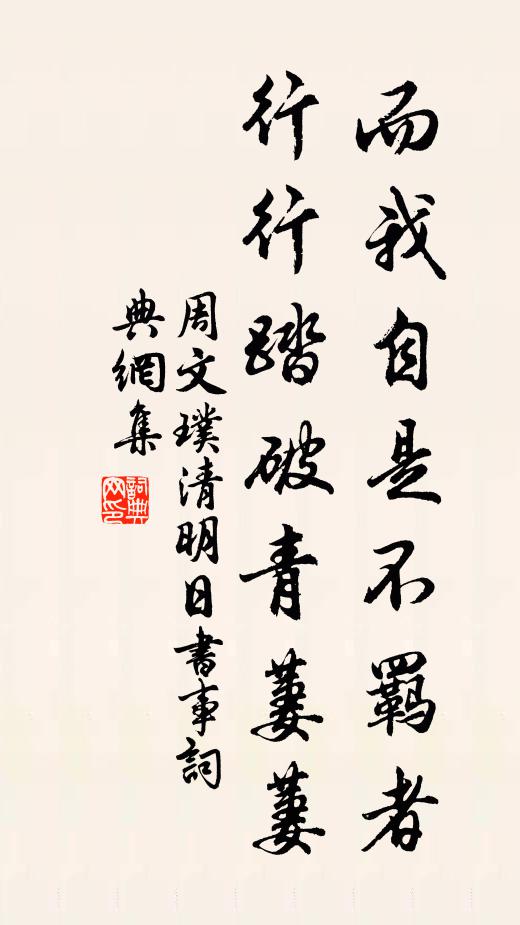 而我自是不羈者
行行踏破青萋萋
周文璞清明日書事詞
典網集
詞典網印